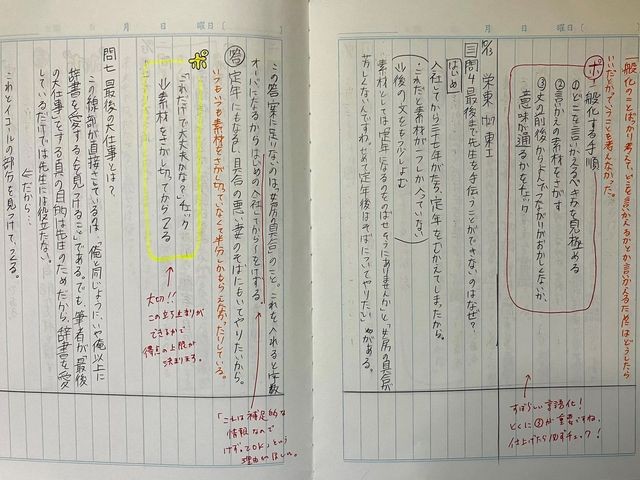 一般化のことばっかり考えてどこを言いかえるかとか言いかえるためにはどうしたら
いいだとかいうことを考えんなかった。
ポ 一般化する手順
①どこを言いかえるべきかを見極める
②言いかえの素材をさがす
③文の前後からよんでつながりがおかしくないか、
意味が通るかをチェック
すばらしい言語化!
とくに③が重要ですね。
仕上げたら必ずチェック!
栄東
三 問4 最後まで先生を手伝うことができないのはなぜ?
はじめ
入社してから三十七年がたち、定年をむかえてしまったから。
これだと素材が一つしか入っていない
後の文をもう少しよむ
素材としては「定年になるのをのばせそうにありませんか」と「女房の具合が
芳しくないんですわ。せめて定年後はそばについてやりたい」がある。
この答案に足りないのは、女房の具合のこと。これを入れると字数
オーバーになるからはじめの入社してから〜をけずる。
答 定年にもなるし、具合の悪い妻のそばにもいてやりたいから。
いつもいつも素材をさがし切っていなくて半分しかもらえなかったりしている。
「これは補足的な
情報なので
けずってOK」という
理由がほしい。
ポ
「これだけで大丈夫かな?」チェック
素材をさがし切ってからつくる
大切!!
この立ち止まりが
できるかで
得点の上限が
決まります。
問七 最後の大仕事とは?
この線部が直接さしているのは「俺と同じように、いや俺以上に
辞書を愛する人を見つけること」である。でも、筆者が「最後
の大仕事」をする真の目的は先生のためだから、辞書を愛
しているだけでは先生には役立たない。
だから、
これとイコールの部分を見つけてつくる。